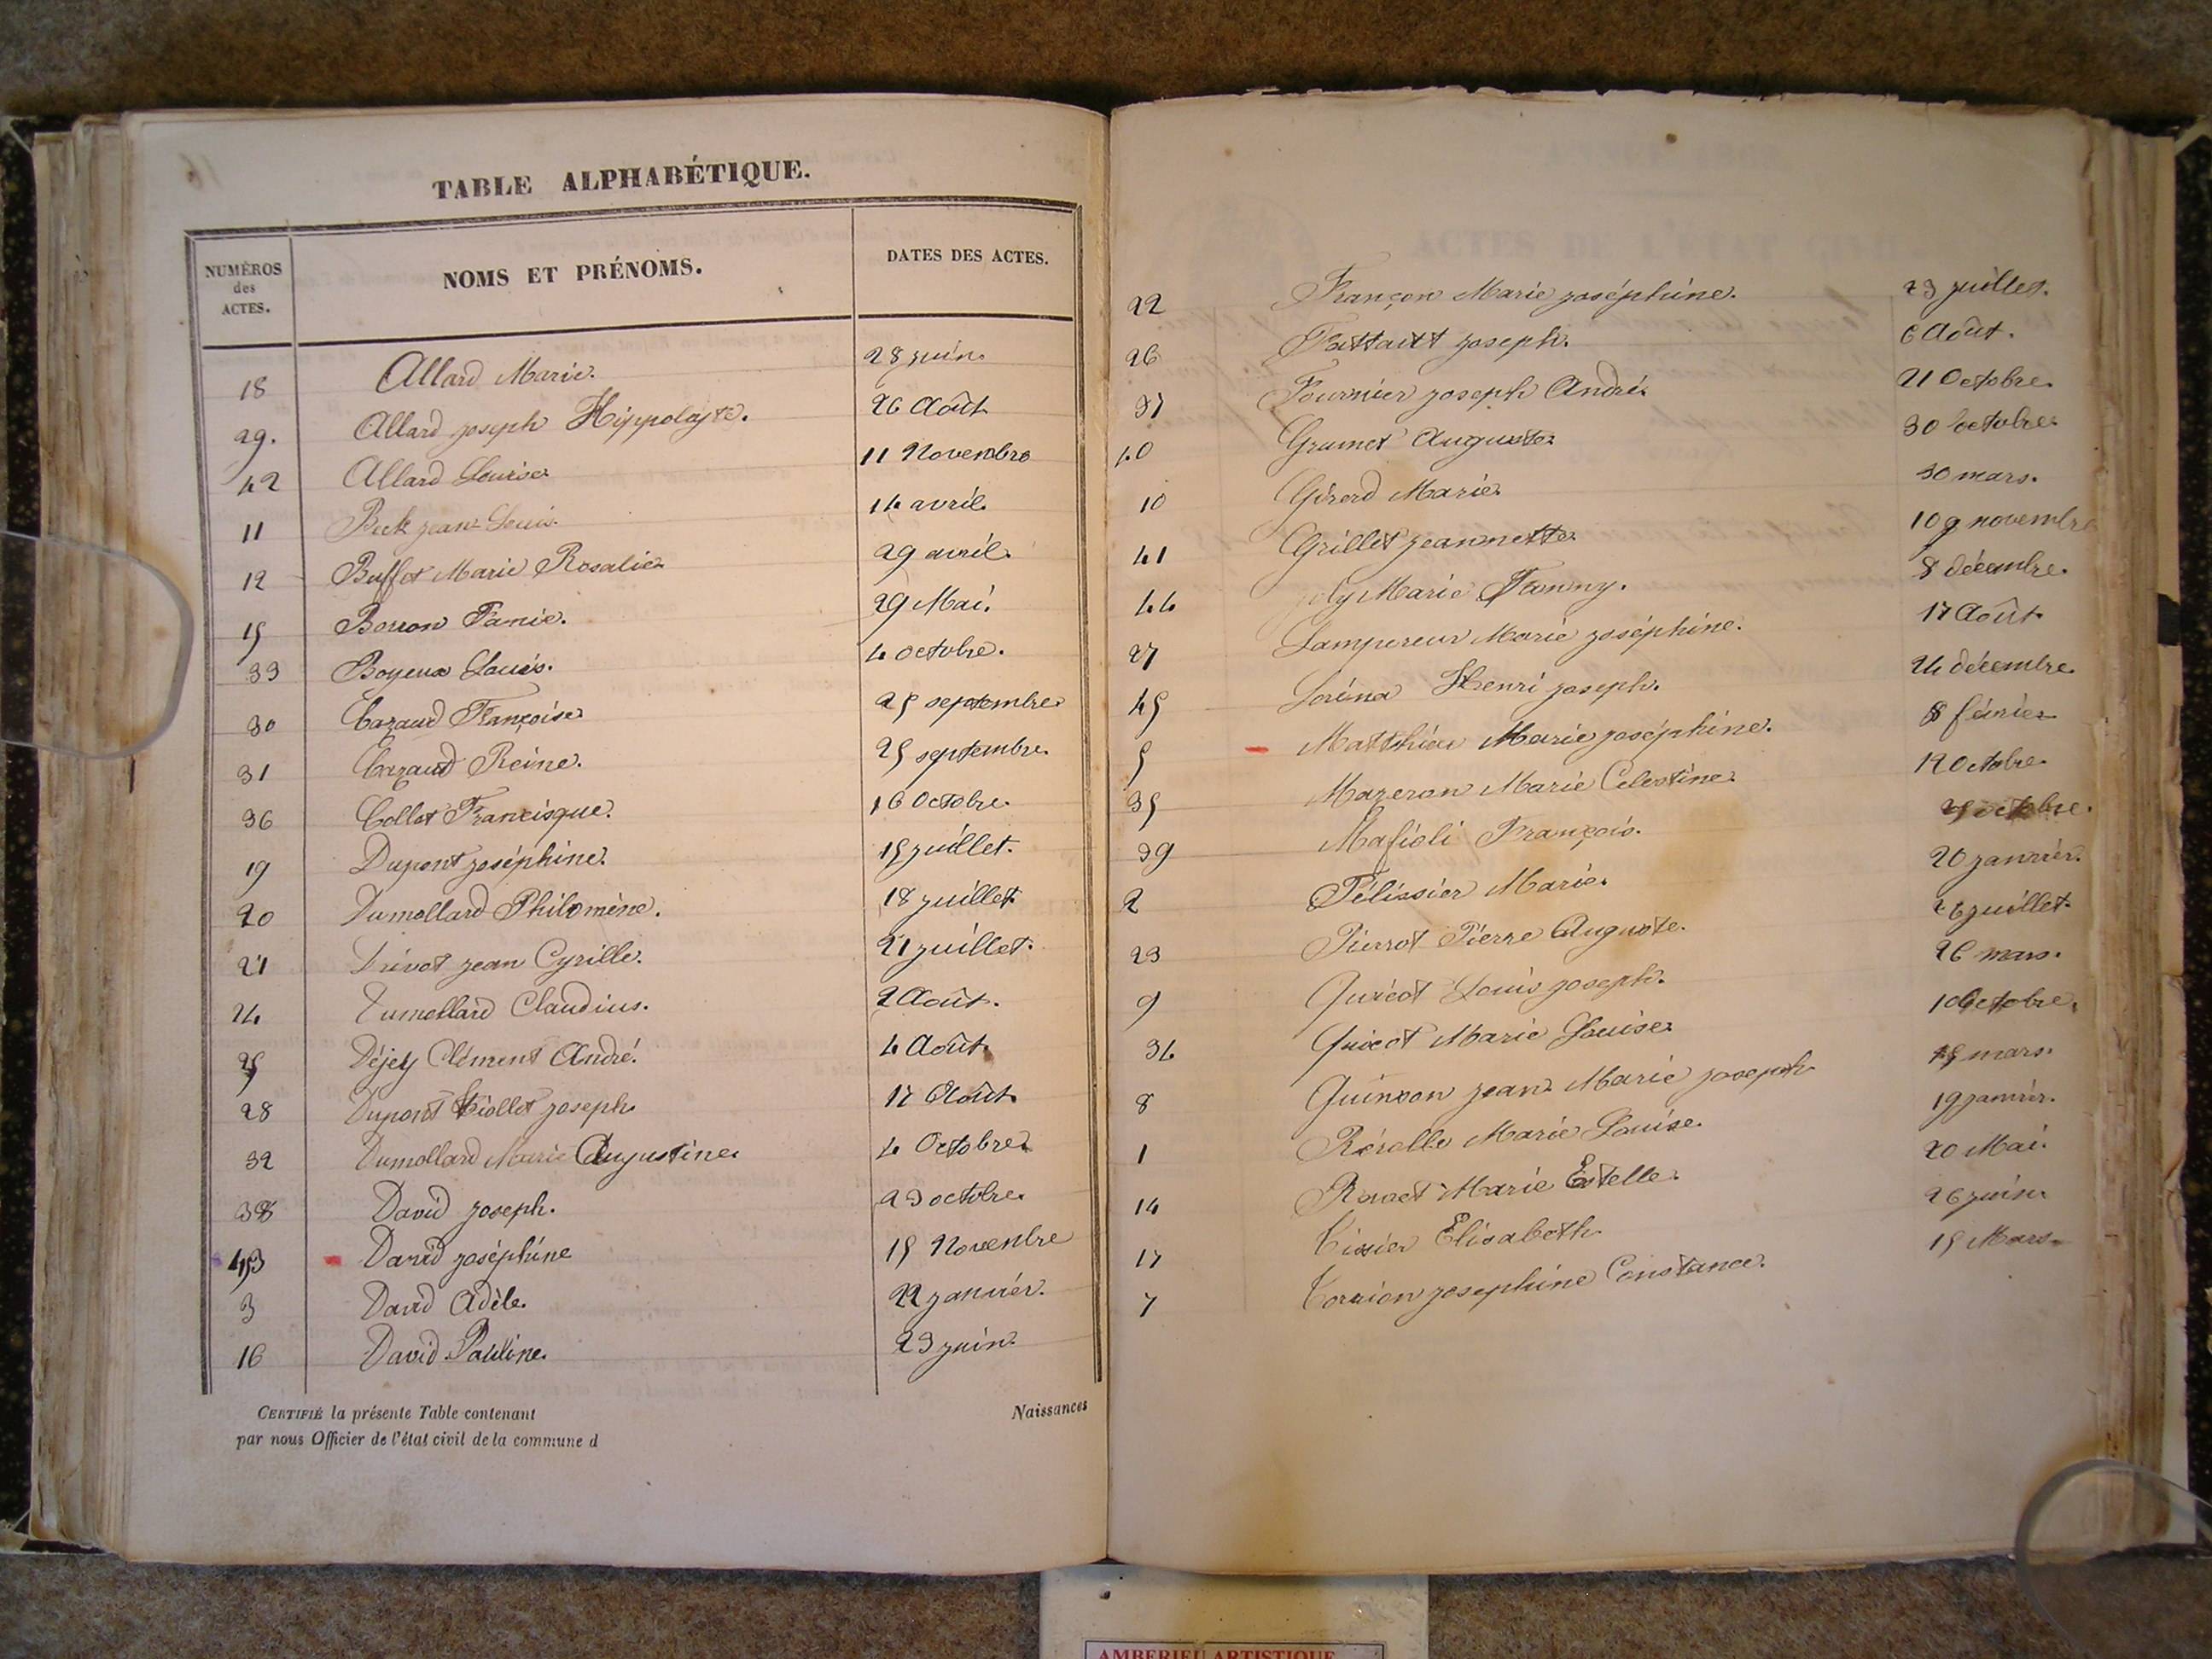 TABLE ALPHABÉTIQUE.
NUMÉROS des ACTES. NOMS ET PRÉNOMS. DATES DES ACTES.
18 Allard Marie. 28 juin
29. Allard joseph Hippolyte. 26 Août
42 Allard Louise 11 Novembre
11 jean Louis. 14 avril
12 Buffet Marie Rosalie 29 avril
15 Borron Fanie. 29 Mai.
33 Boyeux Louis. 4 octobre.
30 Cazaud Françoise 25 septembre
31 Cazaud Reine. 25 septembre.
36 Collet Francisque. 16 Octobre.
19 Dupont joséphine. 15 juillet.
20 Dumollard Philomène. 18 juillet
21 jean Cyrille. 21 juillet.
24 Dumollard Claudius. 2 Août.
25 Déjey Clément André. 4 Août
28 Dupont joseph 17 Août
32 Dumollard Marie Augustine 4 Octobre
38 David joseph. 23 octobre
43 David joséphine 15 Novembre
3 David Adèle. 22 janvier.
16 David Pauline. 23 juin.
CERTIFIÉ la présente Table contenant Naissances
par nous Officier de l'état civil de la commune d
22 Françon Marie joséphine. 23 juillet.
26 joseph. 6 Août.
37 Fournier joseph André. 21 Octobre.
40 Grumet Auguste 30 octobre
10 Girerd Marie 30 mars.
41 Grillet jeannette novembre
44 Marie Fanny. 8 décembre.
27 Lampereur Marie joséphine. 17 Août
45 Henri joseph. 24 décembre.
5 Matthieu Marie joséphine. 8
35 Mazeran Marie Celestine. 12 Octobre.
39 Mafioli François. octobre.
2 Pélissier Marie. 20 janvier.
23 Pierrot Pierre Auguste. 26 juillet.
9 Louis joseph. 26 mars.
34 Marie Louise 10 Octobre.
8 Quinson jean Marie joseph mars.
1 Marie Louise. 19 janvier.
14 Marie Estelle. 20 Mai.
17 Tissier Elisabeth 26 juin
7 josephine Constance. 15 Mars
AMBERIEU ARTISTIQUE